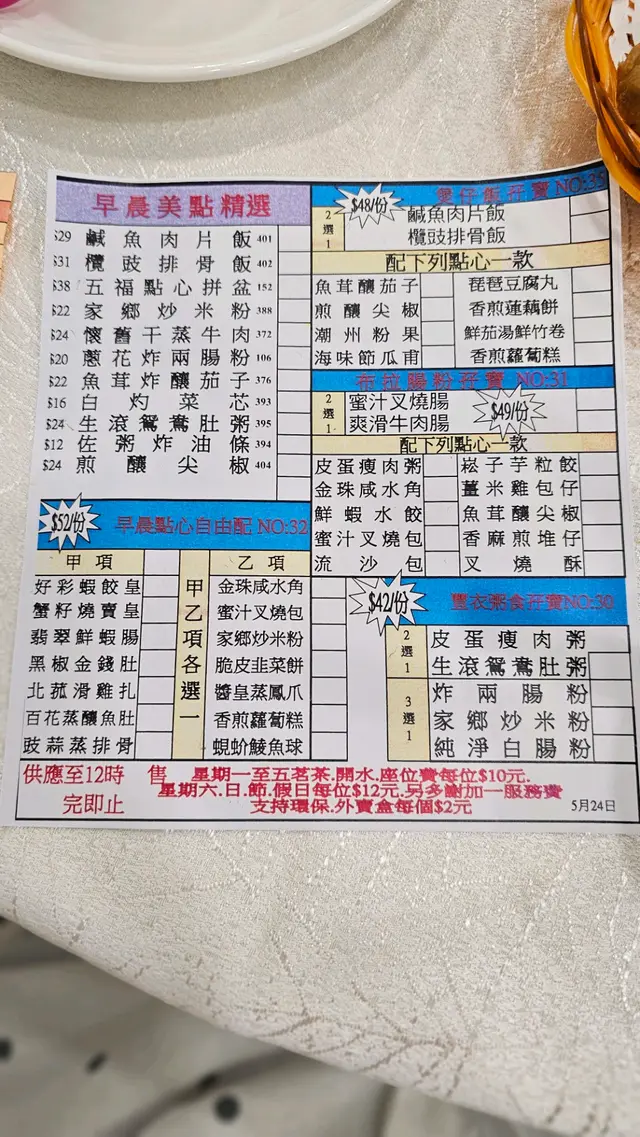 早晨美點精選
$29 鹹魚肉片飯 401
$31 欖豉排骨飯 402
$38 五福點心拼盆 152
$22 家鄉炒米粉 388
$24 懷舊干蒸牛肉 372
$20 蔥花炸兩腸粉 106
$22 魚茸炸釀茄子 376
$16 白灼菜芯 393
$24 生滾鴛鴦肚粥 395
$12 佐粥炸油條 394
$24 煎釀尖椒 404
$52/份 早晨點心自由配 NO:32
甲項
好彩蝦餃皇
蟹籽燒賣皇
翡翠鮮蝦腸
黑椒金錢肚
北菰滑雞扎
百花蒸釀魚肚
豉蒜蒸排骨
甲乙項各選一
乙項
金珠咸水角
蜜汁叉燒包
家鄉炒米粉
脆皮韭菜餅
醬皇蒸鳳爪
香煎蘿蔔糕
蜆蚧鯪魚球
$48/份 煲仔飯孖寶 NO:35
2選1
鹹魚肉片飯
欖豉排骨飯
配下列點心一款
魚茸釀茄子 琵琶豆腐丸
煎釀尖椒 香煎蓮藕餅
潮州粉果 鮮茄湯鮮竹卷
海味節瓜甫 香煎蘿蔔糕
布拉腸粉孖寶 NO:31
2選1
蜜汁叉燒腸
爽滑牛肉腸
$49/份
配下列點心一款
皮蛋瘦肉粥 崧子芋粒餃
金珠咸水角 薑米雞包仔
鮮蝦水餃 魚茸釀尖椒
蜜汁叉燒包 香麻煎堆仔
流沙包 叉燒酥
$42/份 豐衣粥食孖寶NO:30
2選1
皮蛋瘦肉粥
生滾鴛鴦肚粥
3選1
炸兩腸粉
家鄉炒米粉
純淨白腸粉
供應至12時 售完即止
星期一至五茗茶.開水.座位費每位$10元.
星期六.日.節.假日每位$12元.另多謝加一服務費
支持環保.外賣盒每個$2元
5月24日